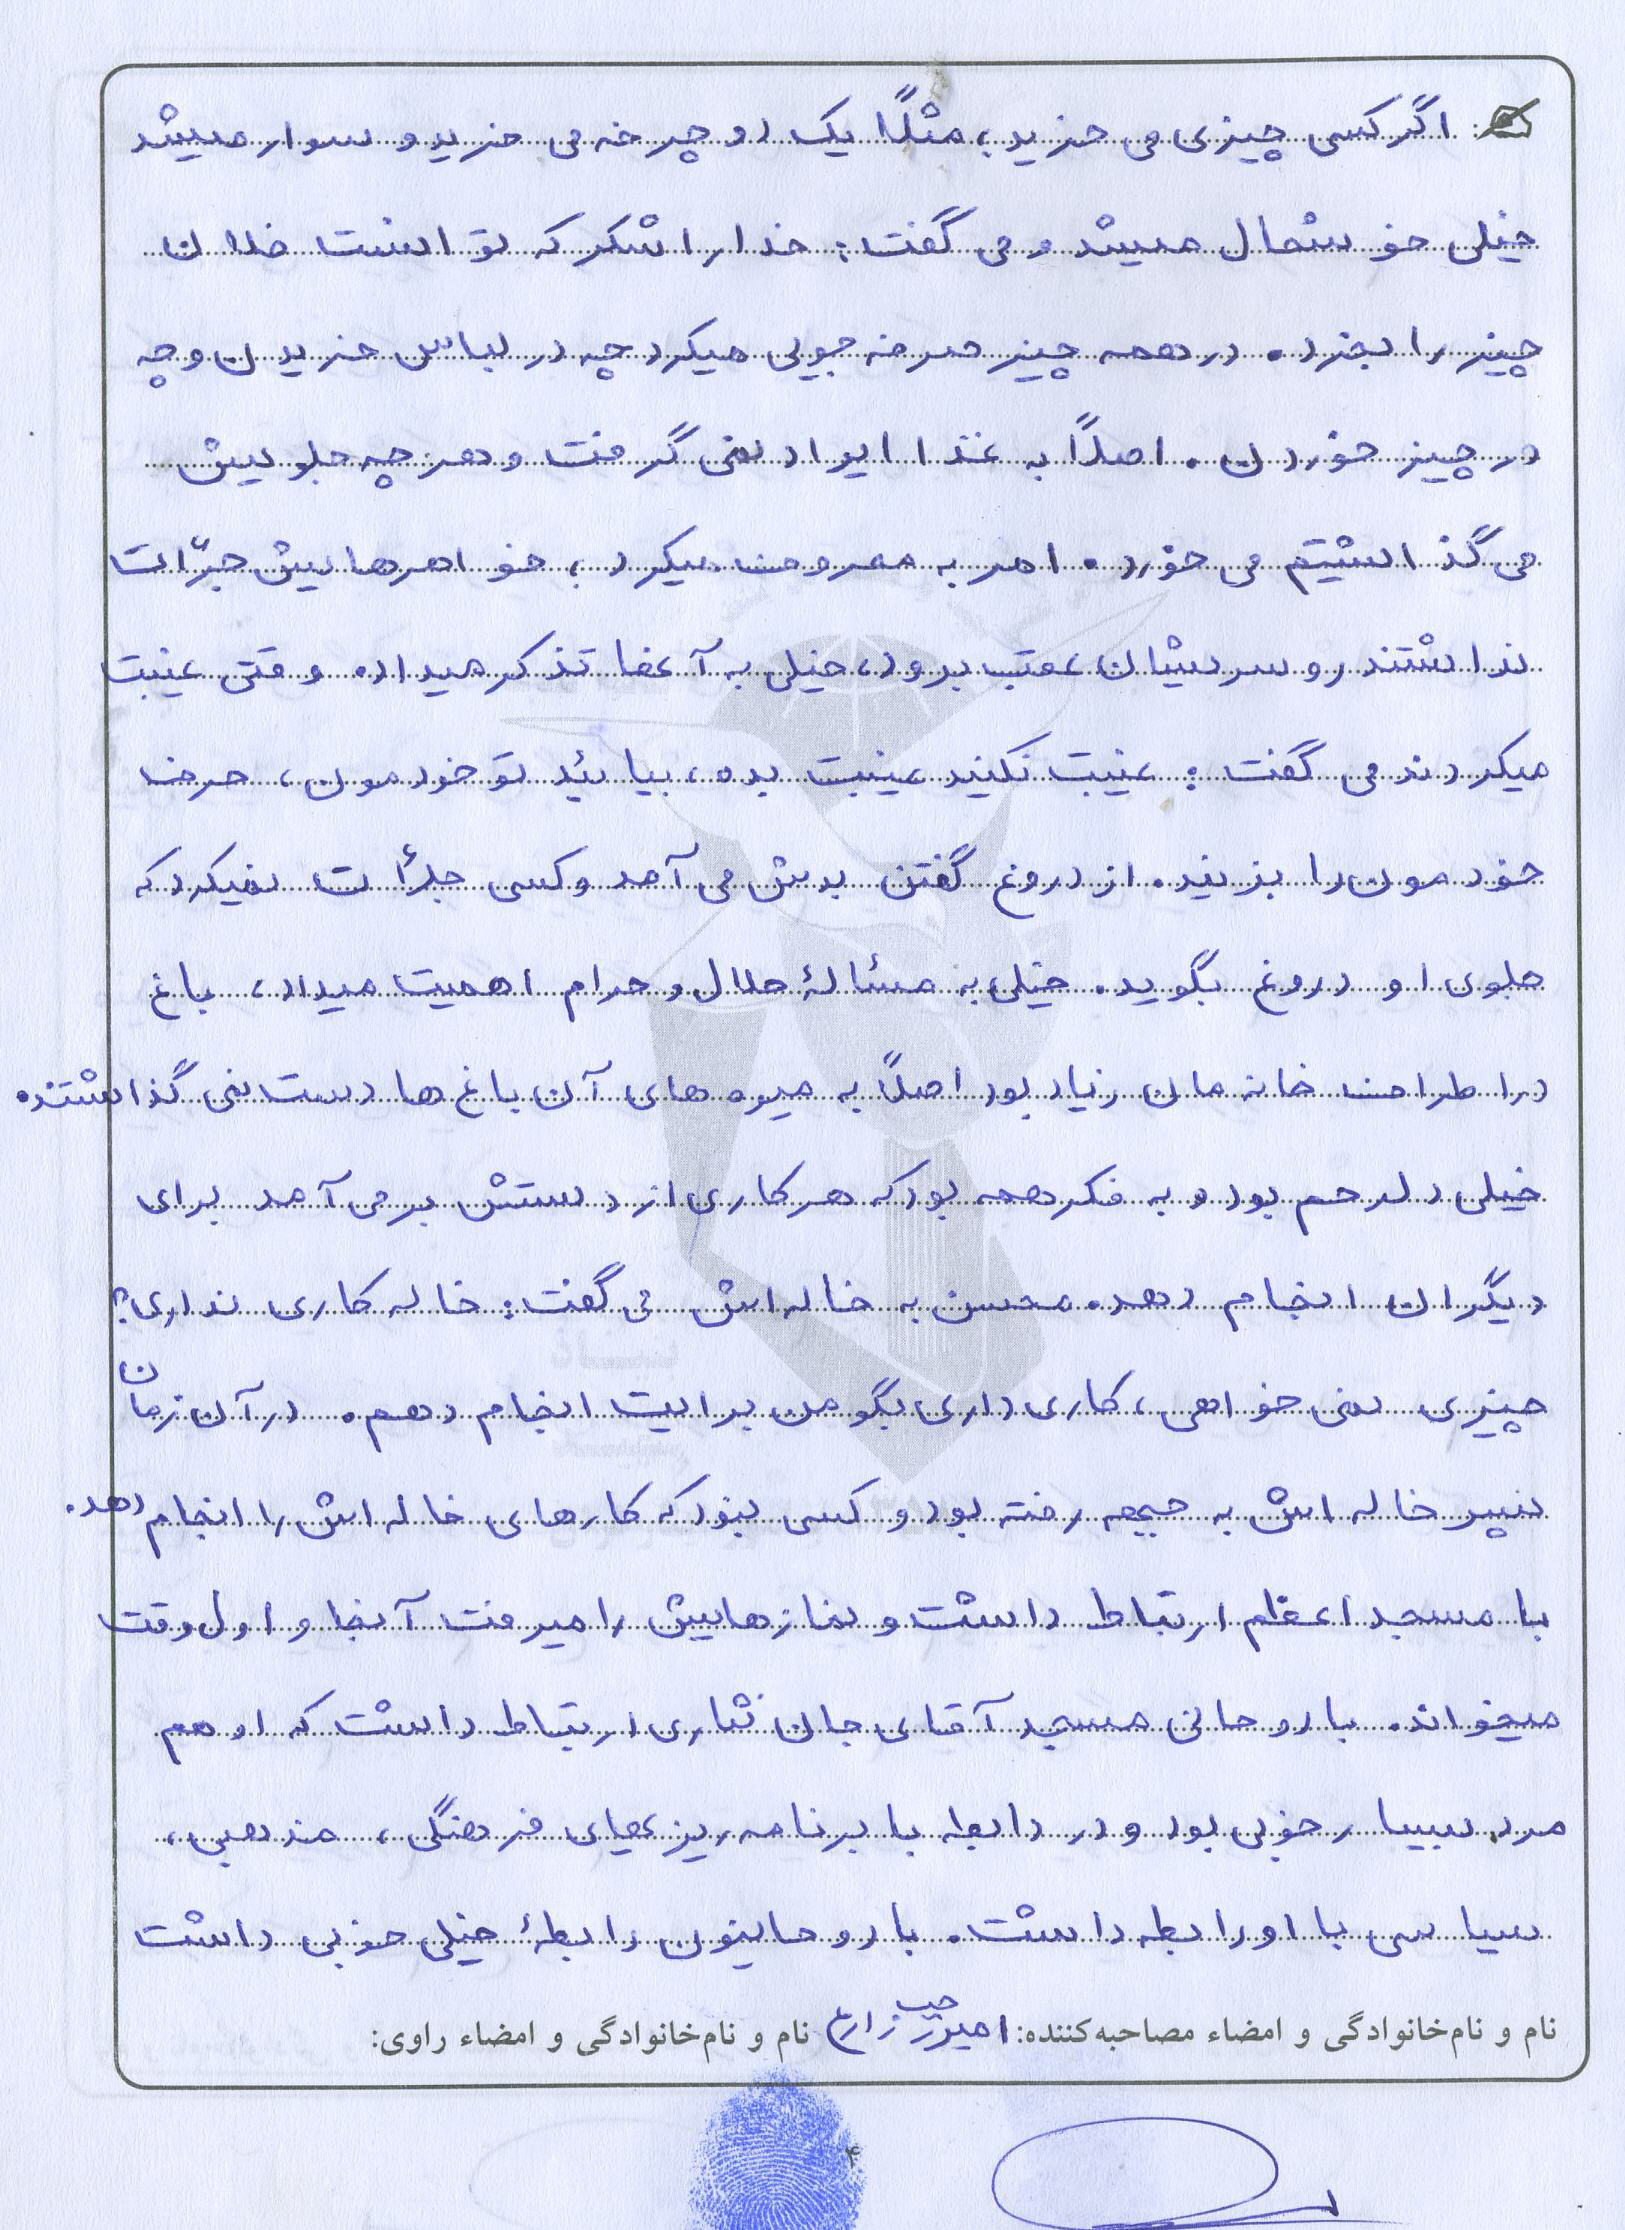 اگر کسی چیزی می خرید؛ مثلاً یک دوچرخه می خرید و سوار میشد
خیلی خوشحال میشد و می گفت: خدا را شکر که توانست فلان
چیز را بخرد. در همه چیز صرفه جویی میکرد چه در لباس خریدن و چه
در چیز خوردن. اصلاً به غذا ایراد نمی گرفت و هر چه جلویش
می گذاشتیم می خورد. امر به معروف میکرد؛ خواهرهایش جرّات
نداشتند روسریشان عقب برود، خیلی به آنها تذکر میداد. وقتی غیبت
میکردند می گفت: غیبت نکنید غیبت بده، بیائید تو خودمون، حرف
خودمون را بزنید. از دروغ گفتن بدش می آمد و کسی جرأت نمیکرد که
جلوی او دروغ بگوید. خیلی به مسئالۀ حلال و حرام اهمیت میداد، باغ
در اطراف خانه مان زیاد بود اصلاً به میوه های آن باغ ها دست نمی گذاشتند.
خیلی دلرحم بود و به فکر همه بود که هر کاری از دستش بر می آمد برای
دیگران انجام دهد. محسن به خاله اش می گفت: خاله کاری نداری؟
چیزی نمی خواهی، کاری داری بگو من برایت انجام دهم. در آن زمان
پسر خاله اش به جبهه رفته بود و کسی نبود که کارهای خاله اش را انجام دهد.
با مسجد اعظم ارتباط داشت و نمازهایش را میرفت آنجا و اول وقت
میخواند. با روحانی مسجد آقای جان نثاری ارتباط داشت که او هم
مرد بسیار خوبی بود و در رابطه با برنامه ریزیهای فرهنگی، مذهبی،
سیاسی با او رابطه داشت. با روحانیون رابطۀ خیلی خوبی داشت
نام و نام‌خانوادگی و امضاء مصاحبه‌کننده: زارع نام و نام‌خانوادگی و امضاء راوی:
۴